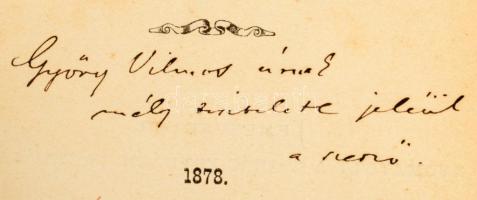 Győry Vilmos úrnak
mély tisztelete jeléül
a szerző.
1878.